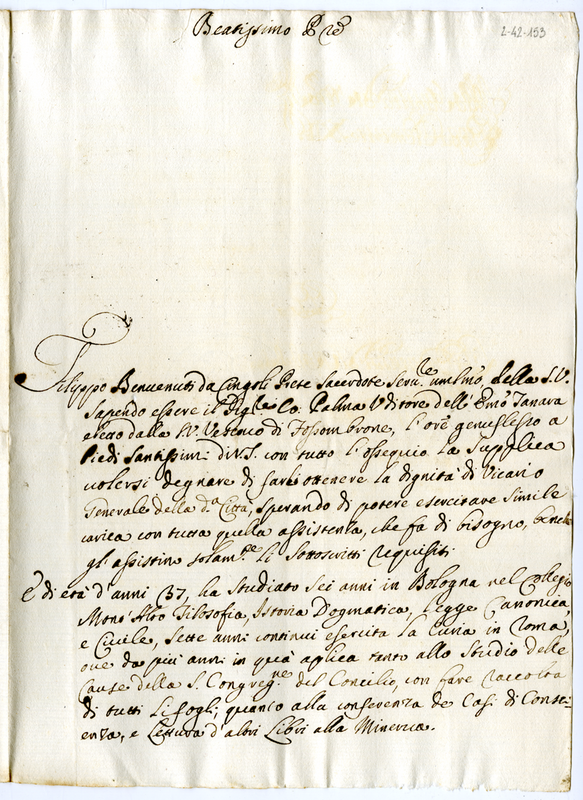 Beatissimo Pre
2-42-153
Filippo Benvenuti da Cingoli Prete Sacerdote Serv.re umilmo della S.V.
Sapendo essere il Sig.re Co. Palma Uditore dell' Emo Tanara
eletto dalla S.V. Vescovo di Fossombrone, l'ore genuflesso a
Piedi Santissimi di V.S. con tutto l'ossequio la Supplica
volersi degnare di farli ottenere la dignità di Vicario
Generale della d.a Città, sperando di potere esercitare simile
carica con tutta quella assistenza, che fa di bisogno, benche
gl'assistino solam.te li sottoscritti requisiti
È di età d'anni 37, ha studiato sei anni in Bologna nel Collegio
Mont'Alto Filosofia, Istoria Dogmatica, Legge Canonica,
e Civile, sette anni continui esercita la Curia in Roma,
ove da più anni in quà aplica tanto allo Studio delle
Cause della S. Congreg.ne del Concilio, con fare raccolta
di tutti li fogli; quanto alla conferenza de Casi di Consci-
enza, e Lettura d'altri Libri alla Minerva.